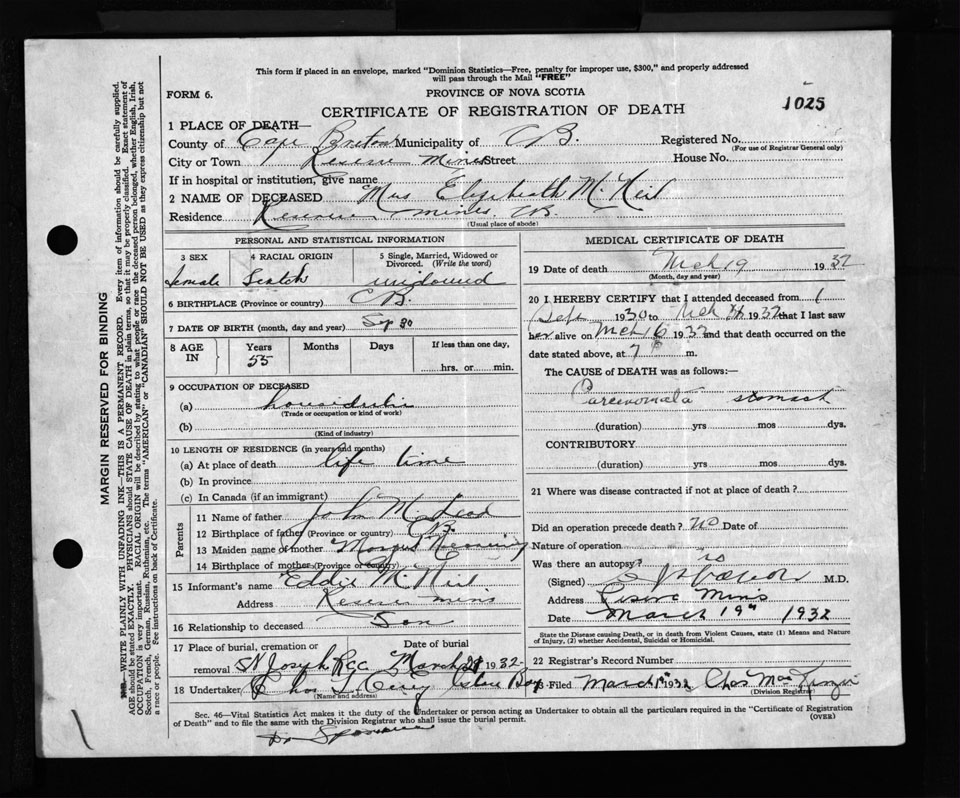 This form if placed in an envelope, marked "Dominion Statistics—Free, penalty for improper use, $300," and properly addressed
will pass through the Mail "FREE"
FORM 6.
PROVINCE OF NOVA SCOTIA
1025
CERTIFICATE OF REGISTRATION OF DEATH
1 PLACE OF DEATH—
County of Cape Breton Municipality of C B. Registered No.
(For use of Registrar General only)
City or Town Reserve Mines Street House No.
If in hospital or institution, give name
2 NAME OF DECEASED Mrs Elizabeath McNeil
Residence Reserve mines CB.
(Usual place of abode)
PERSONAL AND STATISTICAL INFORMATION
3 SEX 4 RACIAL ORIGIN 5 Single, Married, Widowed or Divorced. (Write the word)
female Scotch
6 BIRTHPLACE (Province or country) C B.
7 DATE OF BIRTH (month, day and year) Sep 30
8 AGE IN Years Months Days If less than one day,
55 hrs. or min.
9 OCCUPATION OF DECEASED
(a)
(Trade or occupation or kind of work)
(b)
(Kind of industry)
10 LENGTH OF RESIDENCE (in years and months)
(a) At place of death life time
(b) In province
(c) In Canada (if an immigrant)
Parents
11 Name of father John McLeod
12 Birthplace of father (Province or country) C B.
13 Maiden name of mother
14 Birthplace of mother (Province or country)
15 Informant's name Eddie McNeil
Address Reserve mines
16 Relationship to deceased Son
17 Place of burial, cremation or removal Date of burial
St Joseph March 1932
18 Undertaker Glace Bay
(Name and address)
MEDICAL CERTIFICATE OF DEATH
19 Date of death Mch 19 1932
(Month, day and year)
20 I HEREBY CERTIFY that I attended deceased from 1
Sept 1930 to Mch 1932 that I last saw
her alive on Mch 16 1932 and that death occurred on
date stated above, at 7 P m.
The CAUSE of DEATH was as follows:—
Carcinomata stomach
(duration) yrs mos dys.
CONTRIBUTORY
(duration) yrs mos dys.
21 Where was disease contracted if not at place of death?
Did an operation precede death? no Date of
Nature of operation
Was there an autopsy? no
(Signed) M.D.
Address Reserve Mines
Date March 19th 1932
State the Disease causing Death, or in death from Violent Causes, state (1) Means and Nature
of Injury, (2) whether Accidental, Suicidal or Homicidal.
22 Registrar's Record Number
23 Filed March 1932 Chas
(Division Registrar)
Sec. 46—Vital Statistics Act makes it the duty of the Undertaker or person acting as Undertaker to obtain all the particulars required in the "Certificate of Registration
of Death" and to file the same with the Division Registrar who shall issue the burial permit.
(OVER)
Dr
MARGIN RESERVED FOR BINDING
WRITE PLAINLY WITH UNFADING INK—THIS IS A PERMANENT RECORD. Every item of information should be carefully supplied.
AGE should be stated EXACTLY. PHYSICIANS should STATE CAUSE OF DEATH in plain terms, so that it may be properly classified. Exact statement of
OCCUPATION is very important. RACIAL ORIGIN will be described by stating to what people or race the deceased person belonged, whether English, Irish,
Scotch, French, German, Russian, Ruthenian, etc. The terms "AMERICAN" or "CANADIAN" SHOULD NOT BE USED as they express citizenship but not
a race or people. See instructions on back of Certificate.